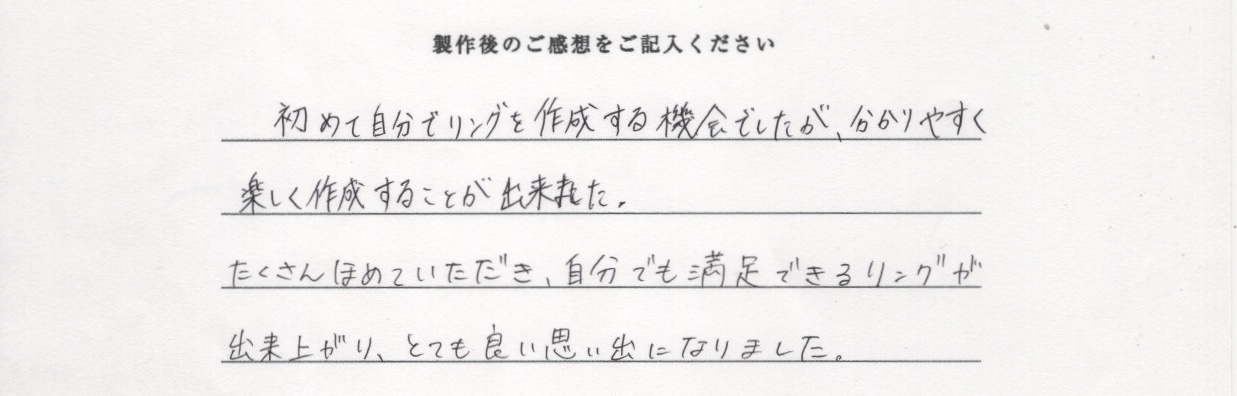 製作後のご感想をご記入ください
初めて自分でリングを作成する機会でしたが、分かりやすく
楽しく作成することが出来ました。
たくさんほめていただき、自分でも満足できるリングが
出来上がり、とても良い思い出になりました。